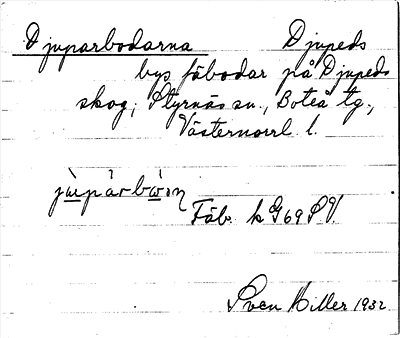 Djuparbodarna Djupeds
bys fäbodar på Djupeds
skog, Styrnäs sn., Boteå tg.,
Västernorrl. l.
Fäb. k G 69 S V.
Sven Hiller 1932